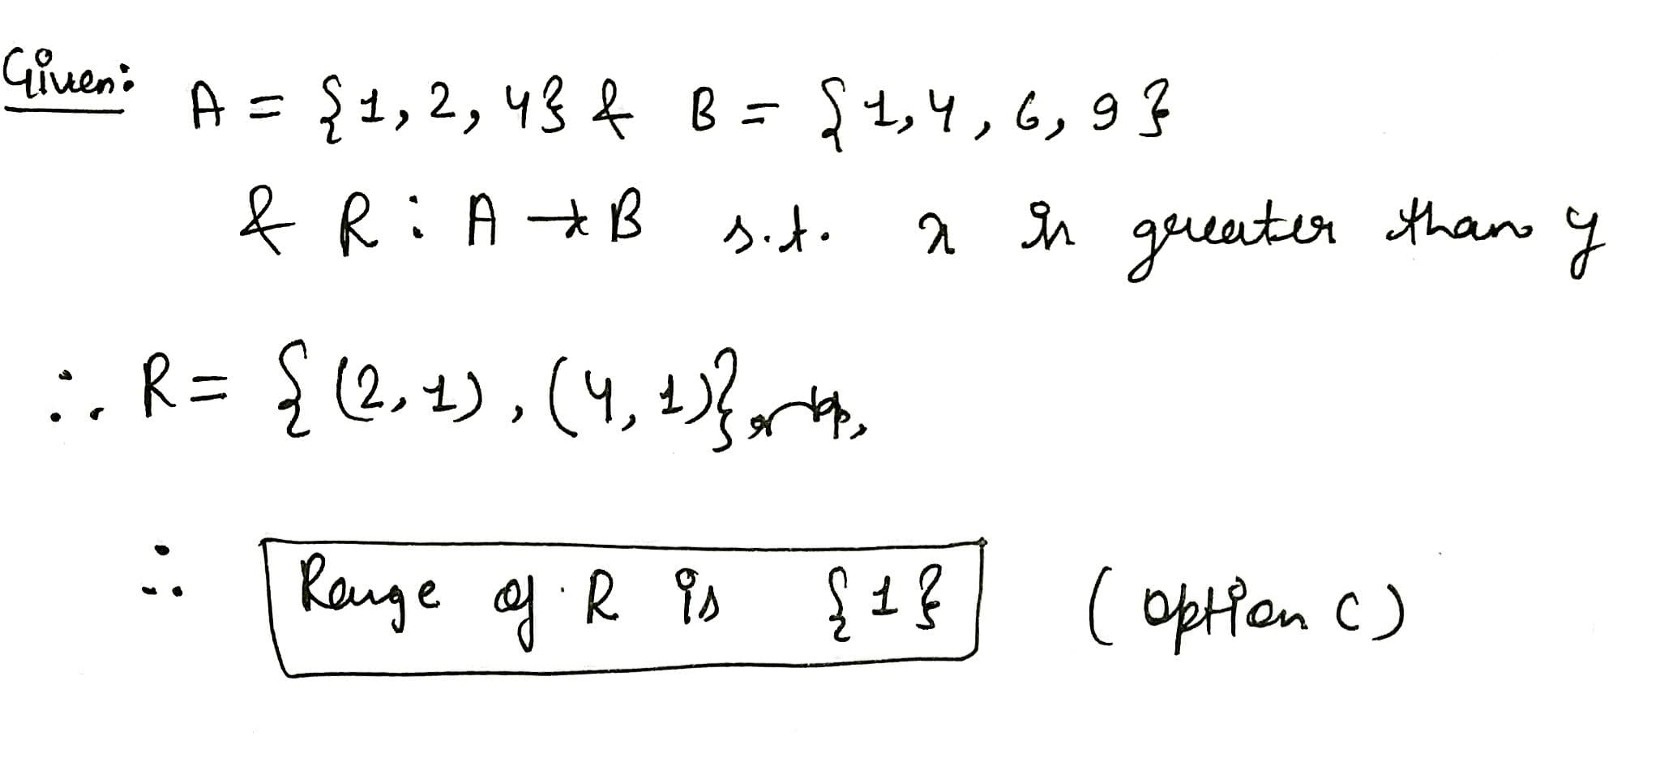 Given: A = {1, 2, 4} & B = {1, 4, 6, 9}
& R : A → B s.t. x is greater than y
∴ R = {(2, 1), (4, 1)}
∴ Range of R is {1} (option C)